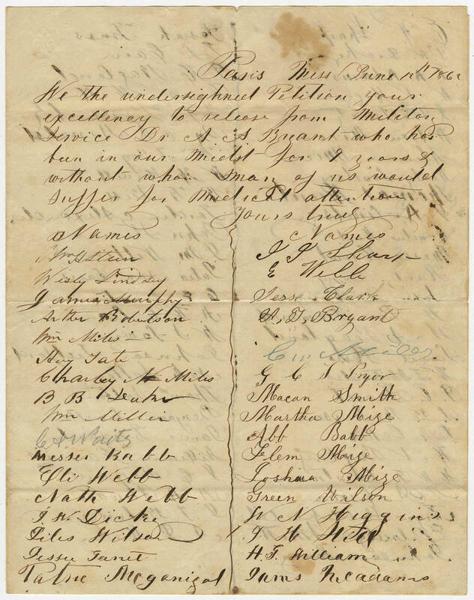 Paris Miss June
We the undersighned Petition your
excellency to release from Militar
Service Dr A S Bryant who has
bun in our midst for 9 years &
without whom many of us would
suffer for Medical attention
Yours truly
Names
Wesly Lindsey
James Murphy
Arther Robertson
Wm Miles
Hey Tate
Charley N Miles
B B
Wm Miller
C A Waits
Messer Babb
Eli Webb
Nath Webb
J W Dickey
Giles Wilson
Jessee
Patric Mcgonigal
Names
J P Sharp
E Webb
Jesse Clark
A. J. Bryant
G C S Pryor
Macon Smith
Martha Mize
Abb Babb
Flem Mize
Joshua Mize
Green Wilson
W N Higgins
J H Hill
H. T. William
James Mcadams